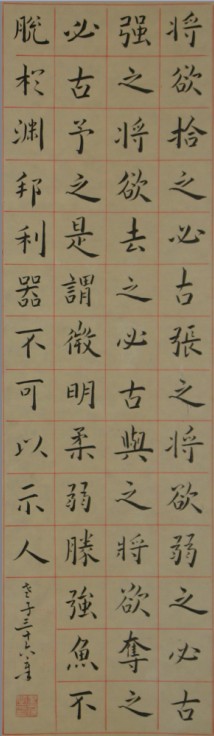 将欲拾之必古張之将欲弱之必古
强之将欲去之必古與之将欲奪之
必古予之是謂微明柔弱勝強魚不
脱於渊邦利器不可以示人
老子三十六章